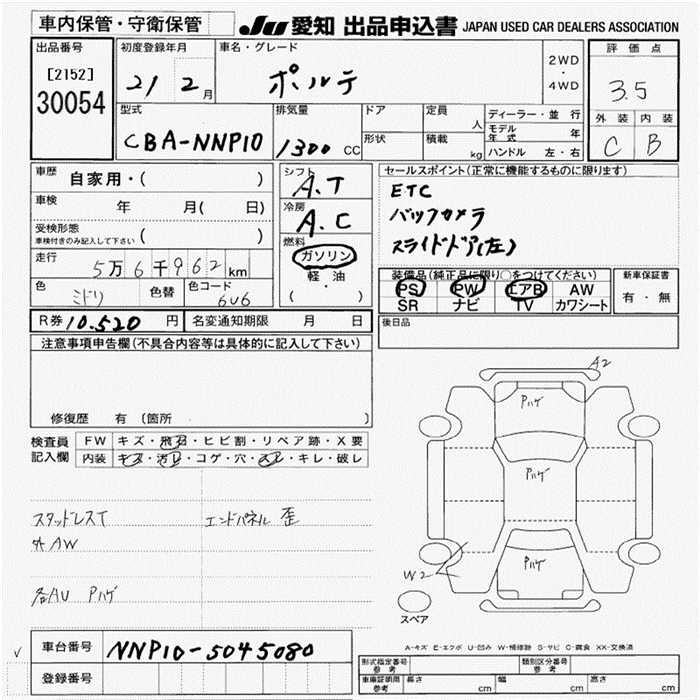 車内保管・守衛保管
JU 愛知 出品申込書 JAPAN USED CAR DEALERS ASSOCIATION
出品番号
[2152]
30054
初度登録年月
21 2 月
車名・グレード
ポルテ
2WD
・
4WD
評価点
3.5
外装 内装
C B
型式
CBA-NNP10
排気量
1300 CC
ドア
形状
定員
人
積載
kg
ディーラー・並行
モデル年式 年
ハンドル 左・右
車歴
自家用・( )
車検
年 月( 日)
受検形態
車検付きのみ記入して下さい ( )
走行
5万6千962km
色
ミドリ
色替
色コード
6U6
シフト
A.T
冷房
A.C
燃料
ガソリン
軽・油
( ・ )
セールスポイント(正常に機能するものに限ります)
ETC
バックカメラ
スライドドア(左)
装備品(純正品に限り○をつけてください)
PS PW エアB AW
SR ナビ TV カワシート
新車保証書
有・無
R券 10.520 円
名変通知期限 月 日
後日品
注意事項申告欄(不具合内容等は具体的に記入して下さい)
修復歴 有 (箇所 )
検査員記入欄
FW キズ・飛石・ヒビ割・リペア跡・X要
内装 キズ・汚レ・コゲ・穴・スレ・キレ・破レ
スタッドレスT エンドパネル 歪
外AW
各AU Pハゲ
A2
Pハゲ
Pハゲ
Pハゲ
W2
スペア
A-キズ E-エクボ U-凹み W-補修跡 S-サビ C-腐食 XX-交換済
車台番号 NNP10-5045080
登録番号
型式指定番号 参考
類別区分番号 参考
車庫証明用 参考
長さ cm 幅 cm 高さ cm